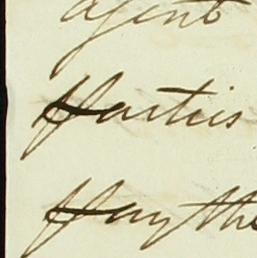 agent
Parties
Pay the